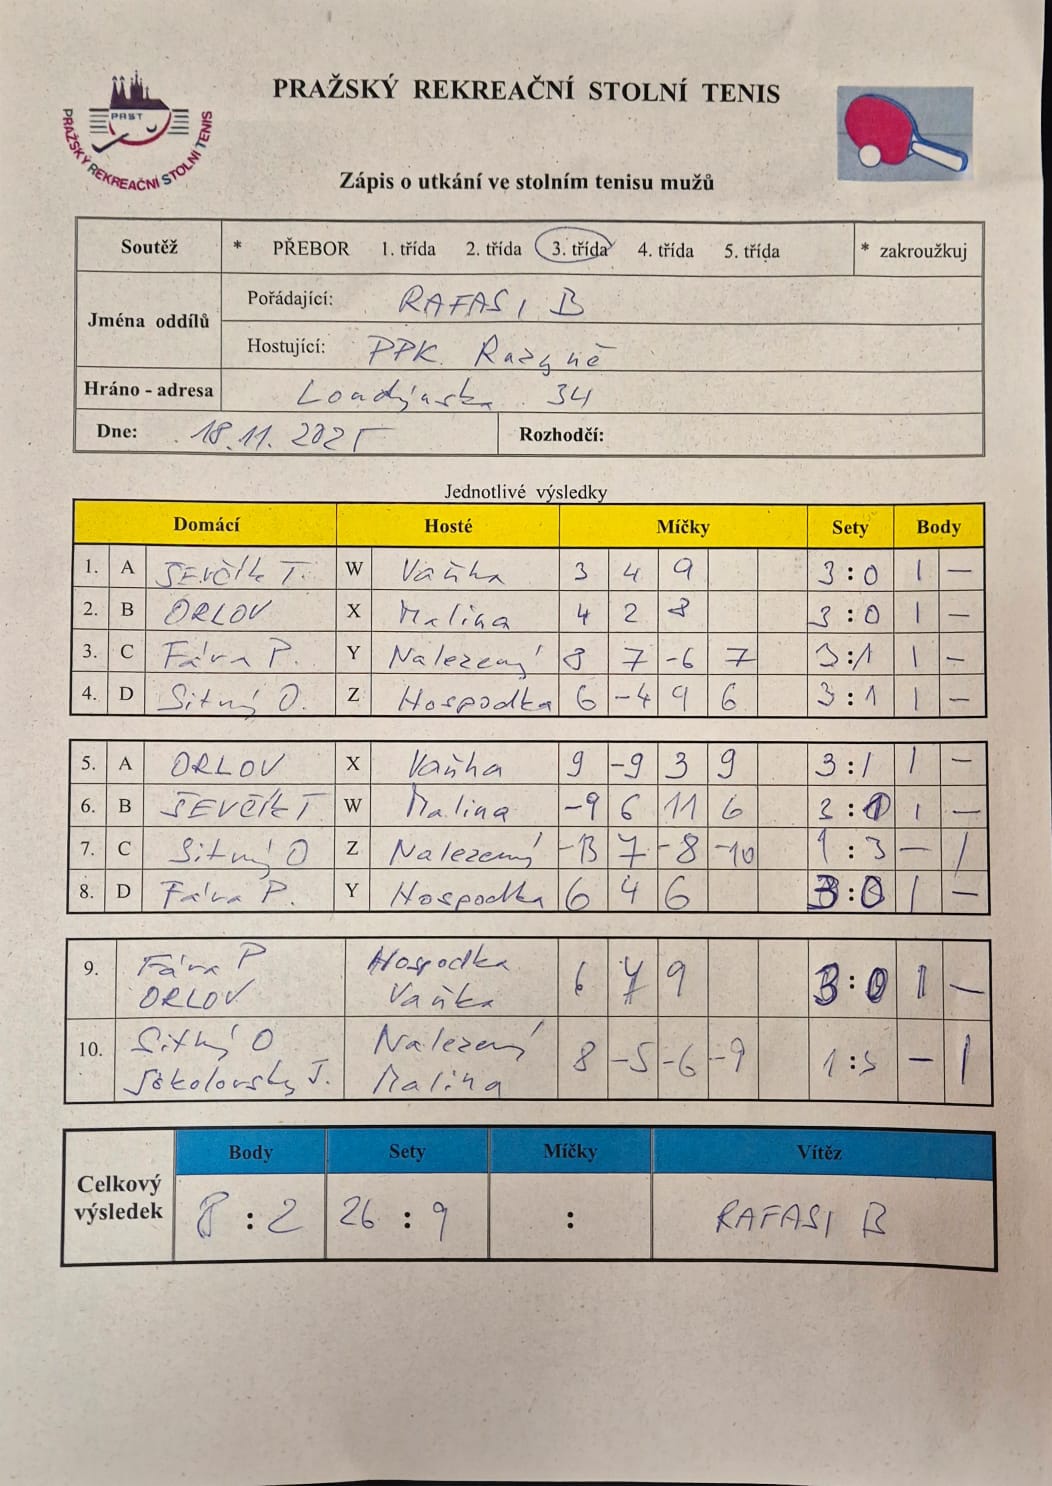 PRAŽSKÝ REKREAČNÍ STOLNÍ TENIS
PRST
PRAŽSKÝ REKREAČNÍ STOLNÍ TENIS
Zápis o utkání ve stolním tenisu mužů
Soutěž * PŘEBOR 1. třída 2. třída 3. třída 4. třída 5. třída * zakroužkuj
Jména oddílů
Pořádající: RAFASI B
Hostující: PPK Ražyně
Hráno - adresa Londýnska 34
Dne: 18.11. 2025 Rozhodčí:
Jednotlivé výsledky
Domácí Hosté Míčky Sety Body
1. A ŠEVČÍK T. W Vaňka 3 4 9 3:0 1 –
2. B ORLOV X Malina 4 2 8 3:0 1 –
3. C Fára P. Y Nalezený 8 7 -6 7 3:1 1 –
4. D Sitný O. Z Hospodka 6 -4 9 6 3:1 1 –
5. A ORLOV X Vaňka 9 -9 3 9 3:1 1 –
6. B ŠEVČÍK T W Malina -9 6 11 6 3:1 1 –
7. C Sitný O Z Nalezený -13 7 -8 -10 1:3 – 1
8. D Fára P. Y Hospodka 6 4 6 3:0 1 –
9. Fára P Hospodka 6 7 9 3:0 1 –
ORLOV Vaňka
10. Sitný O Nalezený 8 -5 -6 -9 1:3 – 1
Sokolovsky J. Malina
Celkový výsledek
Body Sety Míčky Vítěz
8 : 2 26 : 9 : RAFASI B